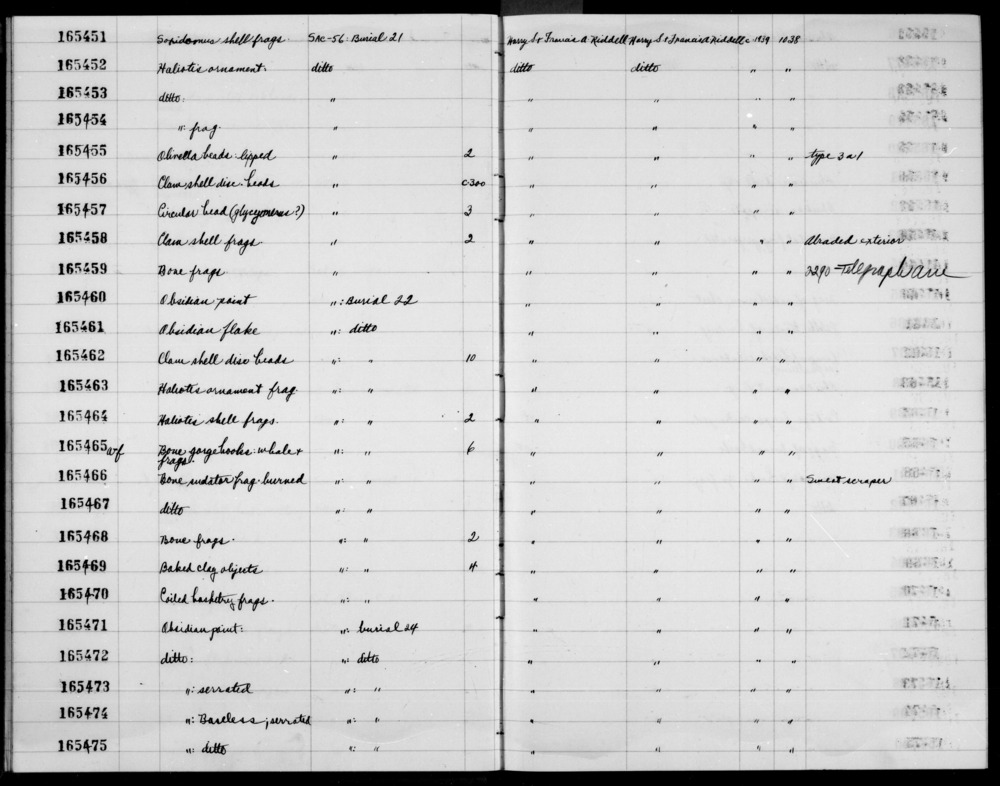 165451 Saxidomus shell frags. SAC-56: Burial 21 Harry S & Francis A Riddell Harry S & Francis A Riddell c 1939 1038
165452 Haliotis ornament: ditto ditto ditto " "
165453 ditto: " " " " "
165454 ": frag. " " " " "
165455 Olivella beads: lipped " 2 " " " " type 3a1
165456 Clam shell disc beads " c300 " " " "
165457 Circular bead (glycymeris?) " 3 " " " "
165458 Clam shell frags. " 2 " " " " Abraded exterior
165459 Bone frags " " " " " 3290 Telegraph Ave
165460 Obsidian point ": Burial 22 " " " "
165461 Obsidian flake ": ditto " " " "
165462 Clam shell disc beads ": " 10 " " " "
165463 Haliotis ornament frag ": " " " " "
165464 Haliotis shell frags. ": " 2 " " " "
165465 a-f Bone gorge hooks: whole + ": " 6 " " " "
frags.
165466 Bone sudator frag. burned ": " " " " " Sweat scraper
165467 ditto ": " " " " "
165468 Bone frags. ": " 2 " " " "
165469 Baked clay objects ": " 4 " " " "
165470 Coiled basketry frags. ": " " " " "
165471 Obsidian point: ": burial 24 " " " "
165472 ditto: ": ditto " " " "
165473 ": serrated ": " " " " "
165474 ": Baseless; serrated ": " " " " "
165475 ": ditto ": " " " " "